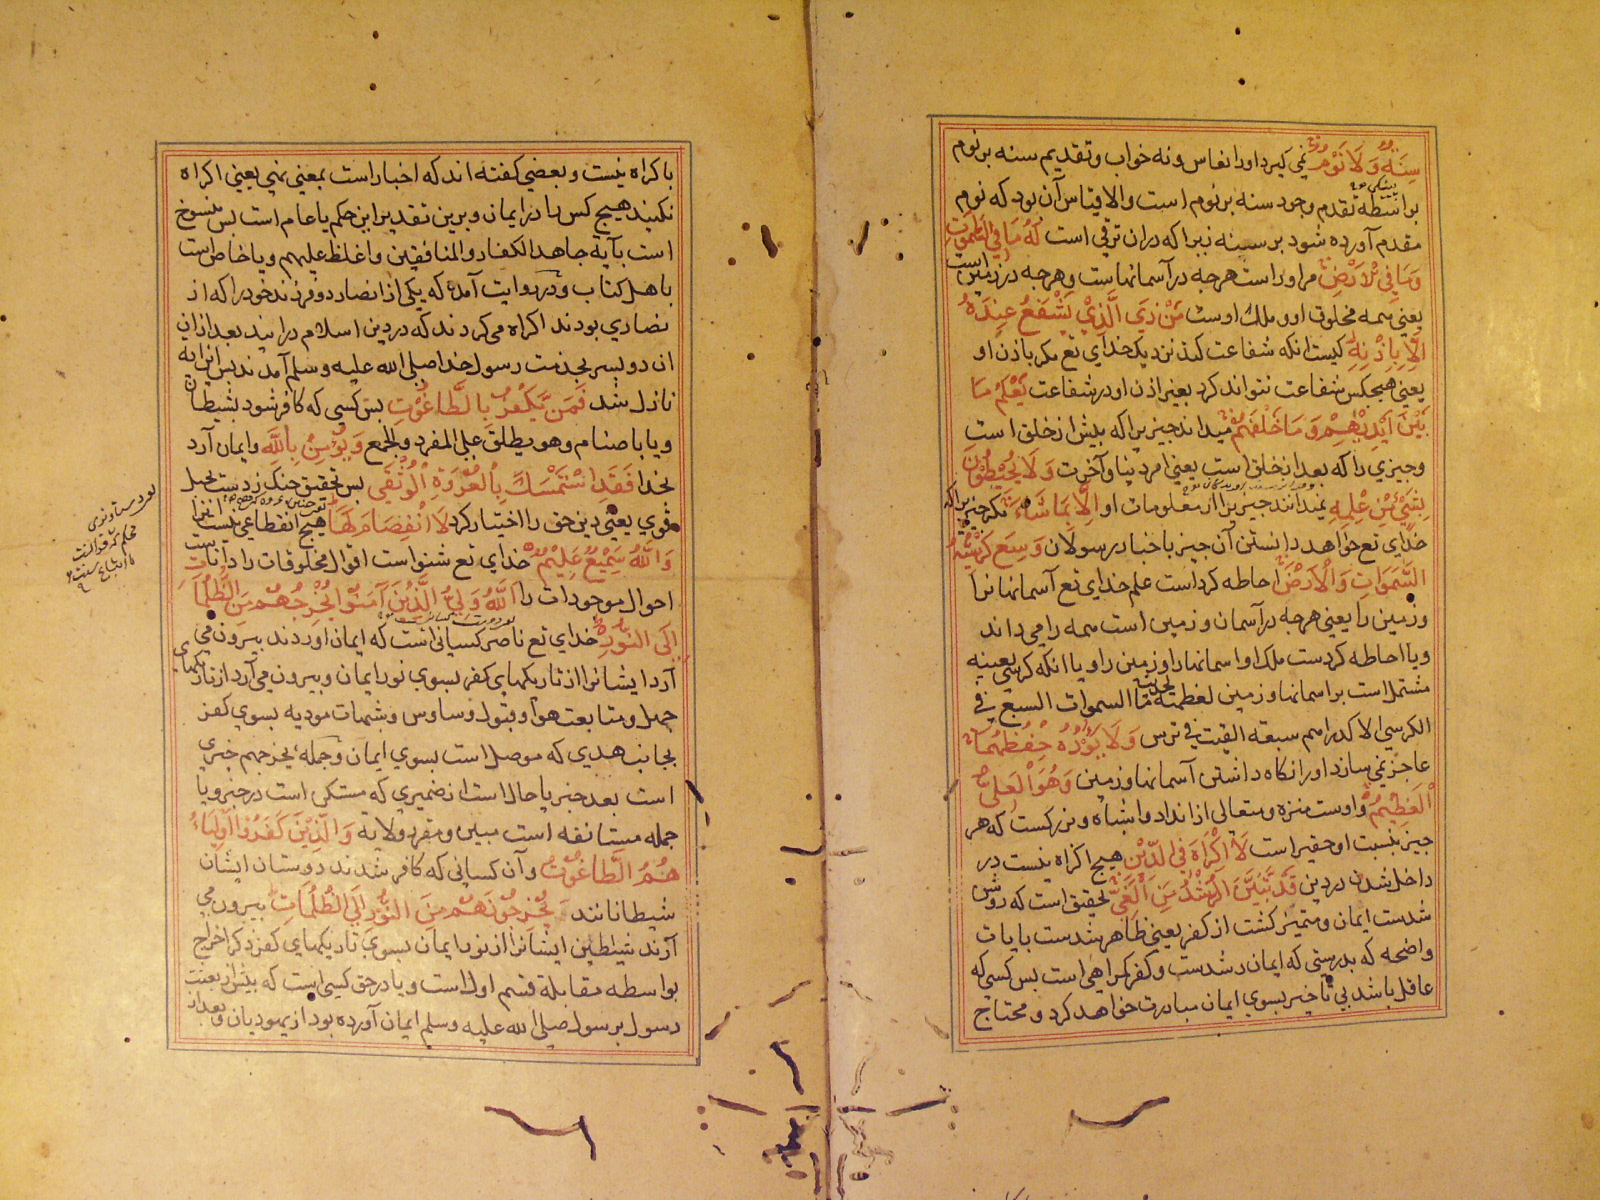 سِنَةٌ وَلَا نَوْمٌ نمی کیرد اورا نعاس ونه خواب وتقدیم سنه بر نوم
بواسطه تقدم وجود سنه بر نوم است والا قیاس آن بود که نوم
مقدم آورده شود بر سنه زیرا که دران ترقی است لَهُ مَا فِي السَّمٰوَاتِ
وَمَا فِي الْاَرْضِ مر اوراست هرچه در آسمانهاست وهرچه در زمین است
یعنی همه مخلوق او و ملک اوست مَنْ ذَي الَّذِيْ يَشْفَعُ عِنْدَهُ
اِلَّا بِاِذْنِهِ کیست انکه شفاعت کند نزدیک خدای تع مکر باذن او
یعنی هیچکس شفاعت نتواند کرد بغیر اذن او در شفاعت يَعْلَمُ مَا
بَيْنَ اَيْدِيْهِمْ وَمَا خَلْفَهُمْ میداند چیزیرا که پیش از خلق است
وچیزی را که بعد از خلق است یعنی امر دنیا وآخرت وَلَا يُحِيْطُوْنَ
بِشَيْئٍ مِنْ عِلْمِهِ نمیدانند چیزیرا از معلومات او اِلَّا بِمَا شَاءَ مکر چیزیرا که
خدای تع خواهد دانستن آن چیز باخبار رسولان وَسِعَ كُرْسِيُّهُ
السَّمٰوَاتِ وَالْاَرْضَ احاطه کرداست علم خدای تع آسمانها نرا
وزمین را یعنی هرچه در آسمان وزمین است همه را می داند
ویا احاطه کردست ملک او اسمانها را وزمین را ویا انکه کرسی بعینه
مشتمل است بر اسمانها وزمین لعظمته لحدیث ما السموات السبع في
الكرسي الا كدراهم سبعة القيت في ترس وَلَا يَؤُدُهُ حِفْظُهُمَا
عاجز نمی سازد اورا نکاه داشتن آسمانها وزمین وَهُوَ الْعَلِيُّ
الْعَظِيْمُ واوست منزه ومتعالی از انداد واشباه وبزرکست که هر
چیز بنسبت او حقیر است لَا اِكْرَاهَ فِي الدِّيْنِ هیچ اکراه نیست در
داخل شدن در دین قَدْ تَّبَيَّنَ الرُّشْدُ مِنَ الْغَيِّ تحقیق است که روشن
شدست ایمان ومتمیز کشت از کفر یعنی ظاهر شدست بایات
واضحه که بدرستی که ایمان رشدست وکفر کمراهی است پس کسی که
عاقل باشد بی تأخیر بسوی ایمان مبادرت خواهد کرد ومحتاج
باکراه نیست وبعضی کفته اند که اخبار است بمعنی نهی یعنی اکراه
نکنید هیچ کس را در ایمان وبرین تقدیر این حکم یا عام است پس منسوخ
است بآیة جاهد الكفار والمنافقين واغلظ عليهم ویا خاص است
باهل کتاب ودر روایت آمده که یکی از انصار دو فرزند خود را که از
نصاری بودند اکراه می کردند که در دین اسلام درایند بعد ازان
ان دو پسر بخدمت رسول خدا صلی الله علیه وسلم آمدند پس این ایه
نازل شد فَمَنْ يَكْفُرْ بِالطَّاغُوْتِ پس کسی که کافر شود بشیطان
ویا باصنام وهو یطلق علی المفرد والجمع وَيُؤْمِنْ بِاللّٰهِ وایمان آرد
بخدا فَقَدِ اسْتَمْسَكَ بِالْعُرْوَةِ الْوُثْقٰي پس تحقیق چنک زدست بحبل
قوی یعنی دین حق را اختیار کرد لَا انْفِصَامَ لَهَا هیچ انقطاعی نیست انرا
وَاللّٰهُ سَمِيْعٌ عَلِيْمٌ خدای تع شنواست اقوال مخلوقات را داناست
احوال موجودات را اَللّٰهُ وَلِيُّ الَّذِيْنَ آمَنُوْا يُخْرِجُهُمْ مِنَ الظُّلُمَاتِ
اِلَی النُّوْرِ خدای تع ناصر کسانی است که ایمان اوردند بیرون می
آرد ایشانرا از تاریکهای کفر بسوی نور ایمان وبیرون می آرد از تاریکهای
جهل ومتابعت هوا وقبول وساوس وشبهات مودیه بسوی کفر
بجانب هدی که موصل است بسوی ایمان وجمله یخرجهم خبری
است بعد خبر یا حال است از ضمیری که مستکن است در خبر ویا
جمله مستانفه است مبین ومقرر ولایة وَالَّذِيْنَ كَفَرُوْا اَوْلِيَاءُ
هُمُ الطَّاغُوْتُ وآن کسانی که کافر شدند دوستان ایشان
شیطانانند يُخْرِجُوْنَهُمْ مِنَ النُّوْرِ اِلَي الظُّلُمَاتِ بیرون می
آرند شیاطین ایشانرا از نور ایمان بسوی تاریکهای کفر ذکر اخراج
بواسطه مقابلة قسم اول است ویا در حق کسی است که پیش از بعثت
رسول برسول صلی الله علیه وسلم ایمان آورده بود از یهودیان وبعد از